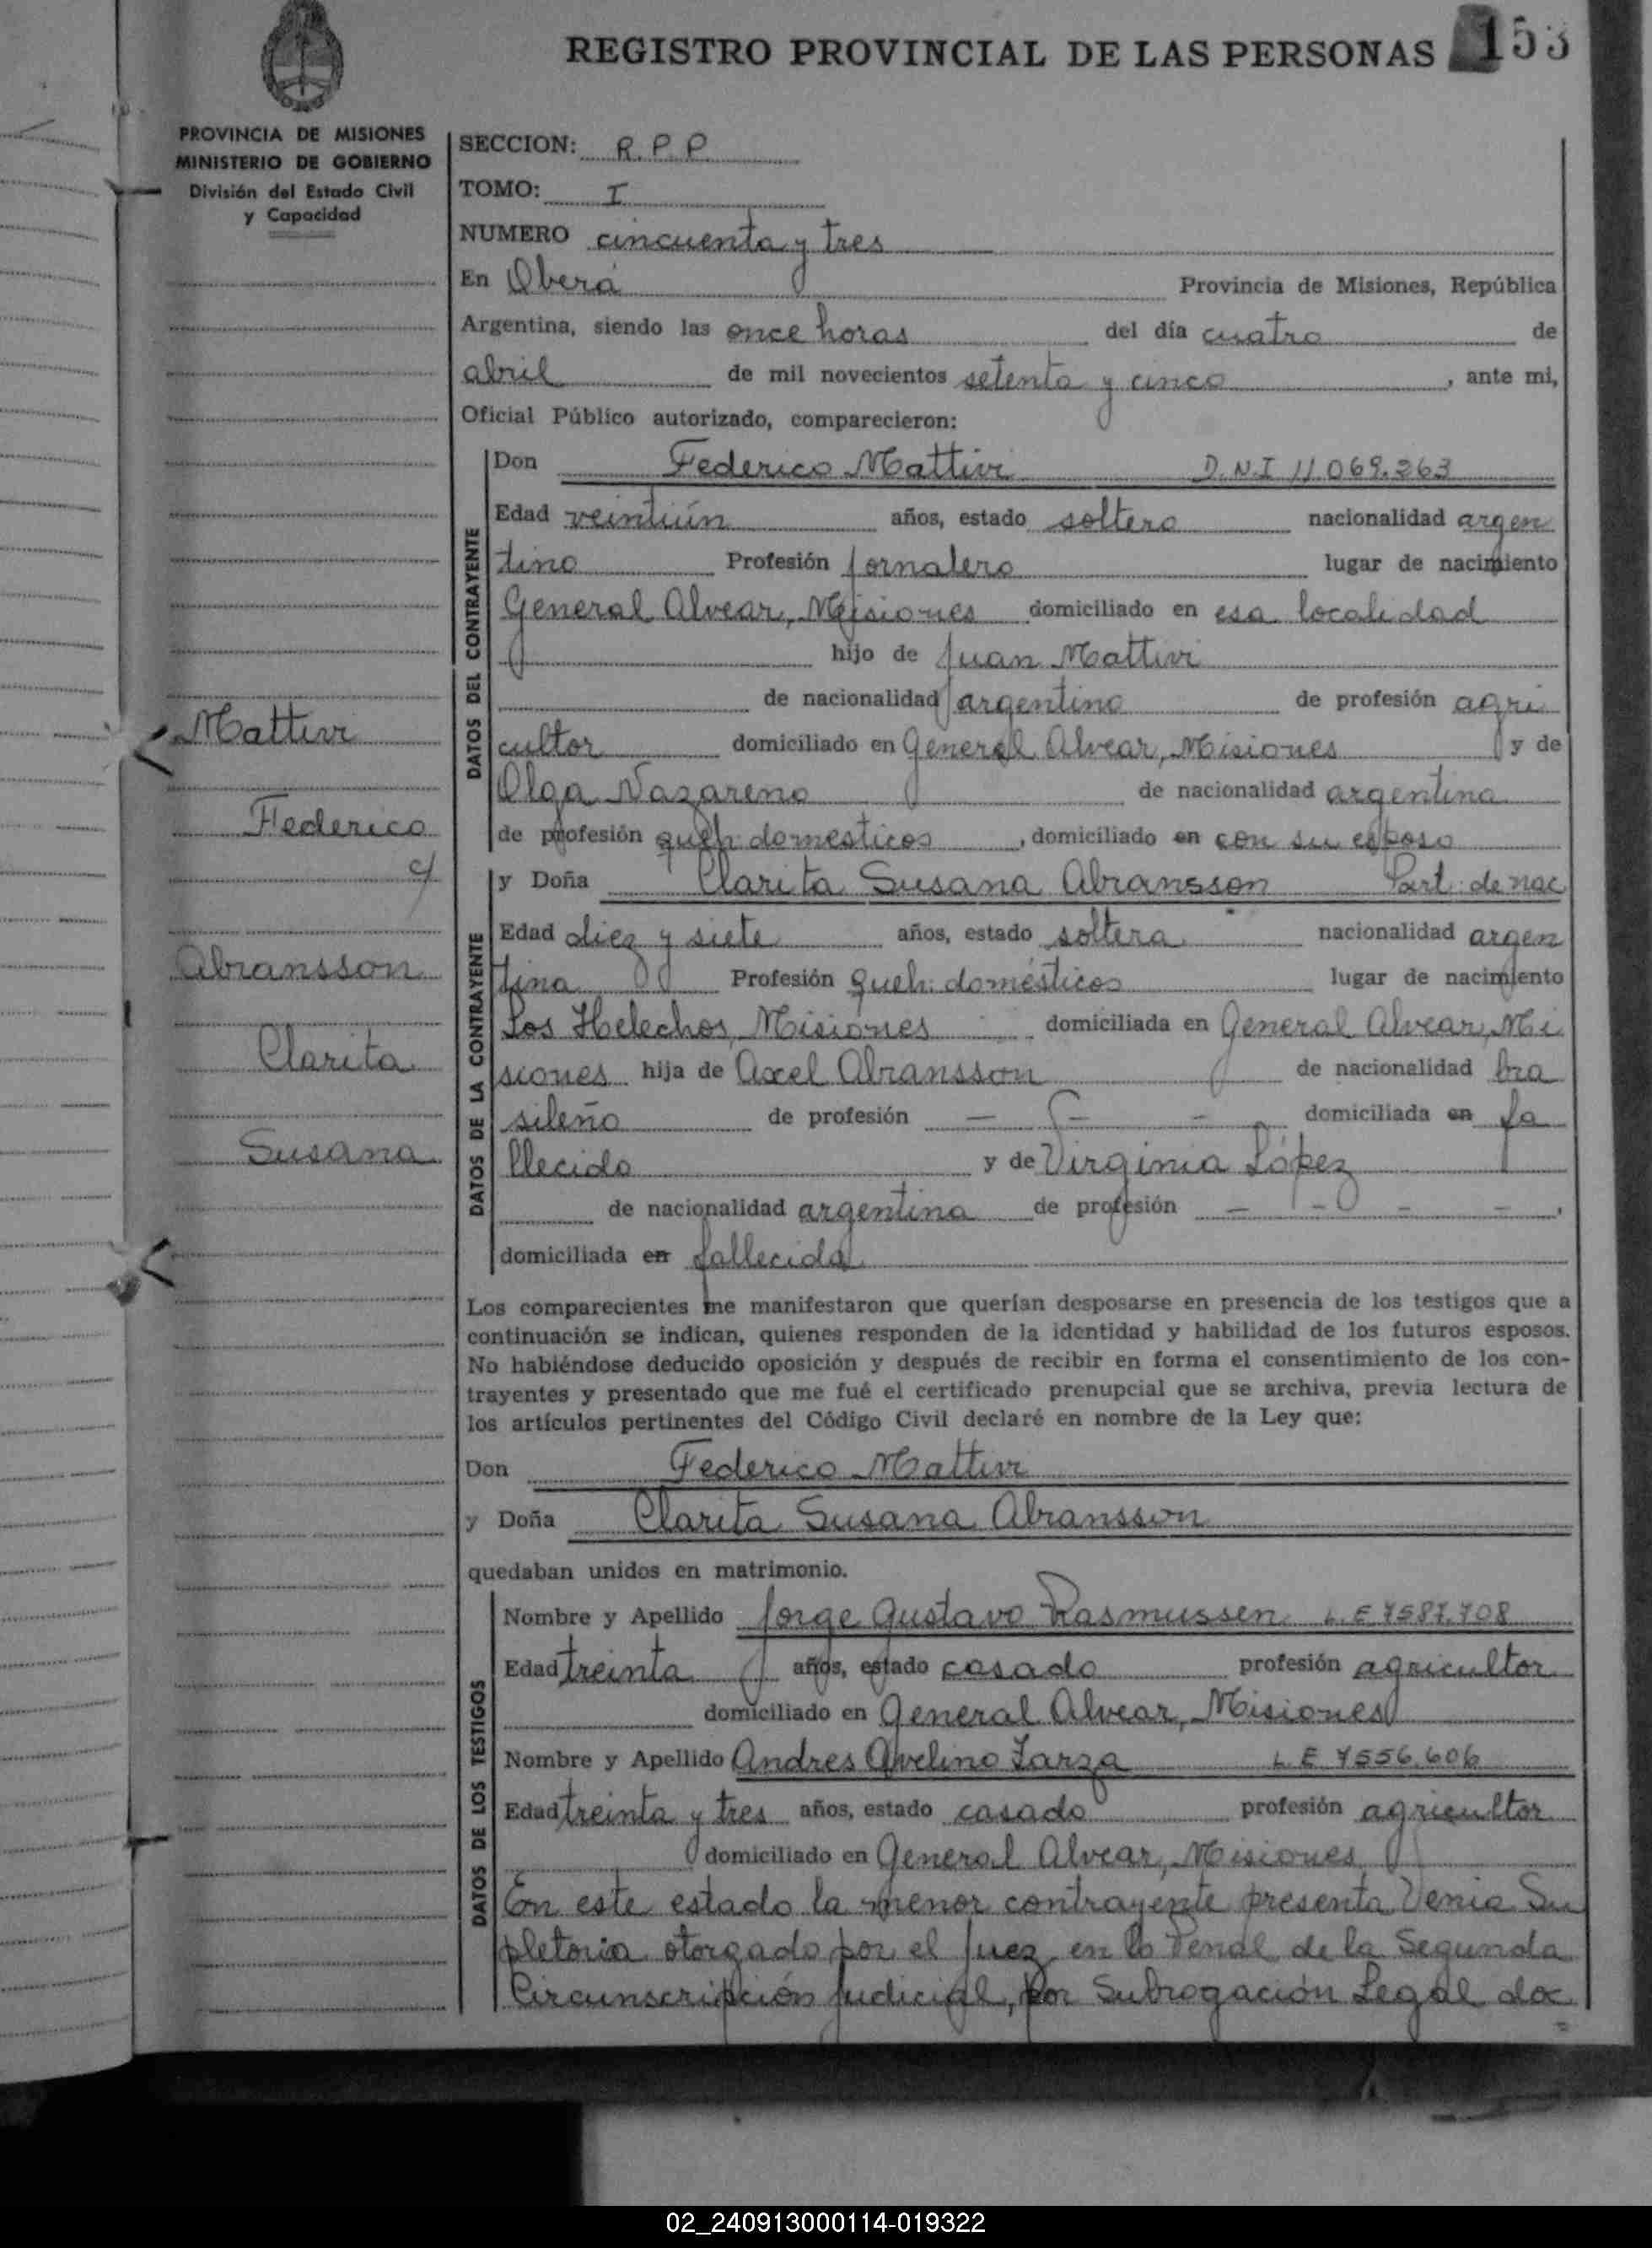 REGISTRO PROVINCIAL DE LAS PERSONAS 153
PROVINCIA DE MISIONES
MINISTERIO DE GOBIERNO
División del Estado Civil
y Capacidad
SECCION: R.P.P.
TOMO: I
NUMERO cincuenta y tres
En Oberá Provincia de Misiones, República
Argentina, siendo las once horas del día cuatro de
abril de mil novecientos setenta y cinco, ante mi,
Oficial Público autorizado, comparecieron:
DATOS DEL CONTRAYENTE
Don Federico Mattivi D.N.I 11.069.263
Edad veintiún años, estado soltero nacionalidad argen
tino Profesión Jornalero lugar de nacimiento
General Alvear, Misiones domiciliado en esa localidad
hijo de Juan Mattivi
de nacionalidad argentino de profesión agri
cultor domiciliado en General Alvear, Misiones y de
Olga Nazareno de nacionalidad argentina
de profesión queh. domesticos, domiciliado en con su esposo
Mattivi
Federico
c/
Abransson
Clarita
Susana
DATOS DE LA CONTRAYENTE
y Doña Clarita Susana Abransson Part. de nac
Edad diez y siete años, estado soltera nacionalidad argen
tina Profesión queh. domésticos lugar de nacimiento
Los Helechos, Misiones domiciliada en General Alvear, Mi
siones hija de Axel Abransson de nacionalidad bra
sileño de profesión - - - domiciliada en fa
llecido y de Virginia López
de nacionalidad argentina de profesión - - - -,
domiciliada en fallecida
Los comparecientes me manifestaron que querían desposarse en presencia de los testigos que a
continuación se indican, quienes responden de la identidad y habilidad de los futuros esposos.
No habiéndose deducido oposición y después de recibir en forma el consentimiento de los con-
trayentes y presentado que me fué el certificado prenupcial que se archiva, previa lectura de
los artículos pertinentes del Código Civil declaré en nombre de la Ley que:
Don Federico Mattivi
y Doña Clarita Susana Abransson
quedaban unidos en matrimonio.
DATOS DE LOS TESTIGOS
Nombre y Apellido Jorge Gustavo Rasmussen L.E 7587.708
Edad treinta años, estado casado profesión agricultor
domiciliado en General Alvear, Misiones
Nombre y Apellido Andres Avelino Zarza L.E 7556.606
Edad treinta y tres años, estado casado profesión agricultor
domiciliado en General Alvear, Misiones
En este estado la menor contrayente presenta Venia Su
pletoria otorgado por el Juez en lo Penal de la Segunda
Circunscripción Judicial, por Subrogación Legal doc
02_240913000114-019322